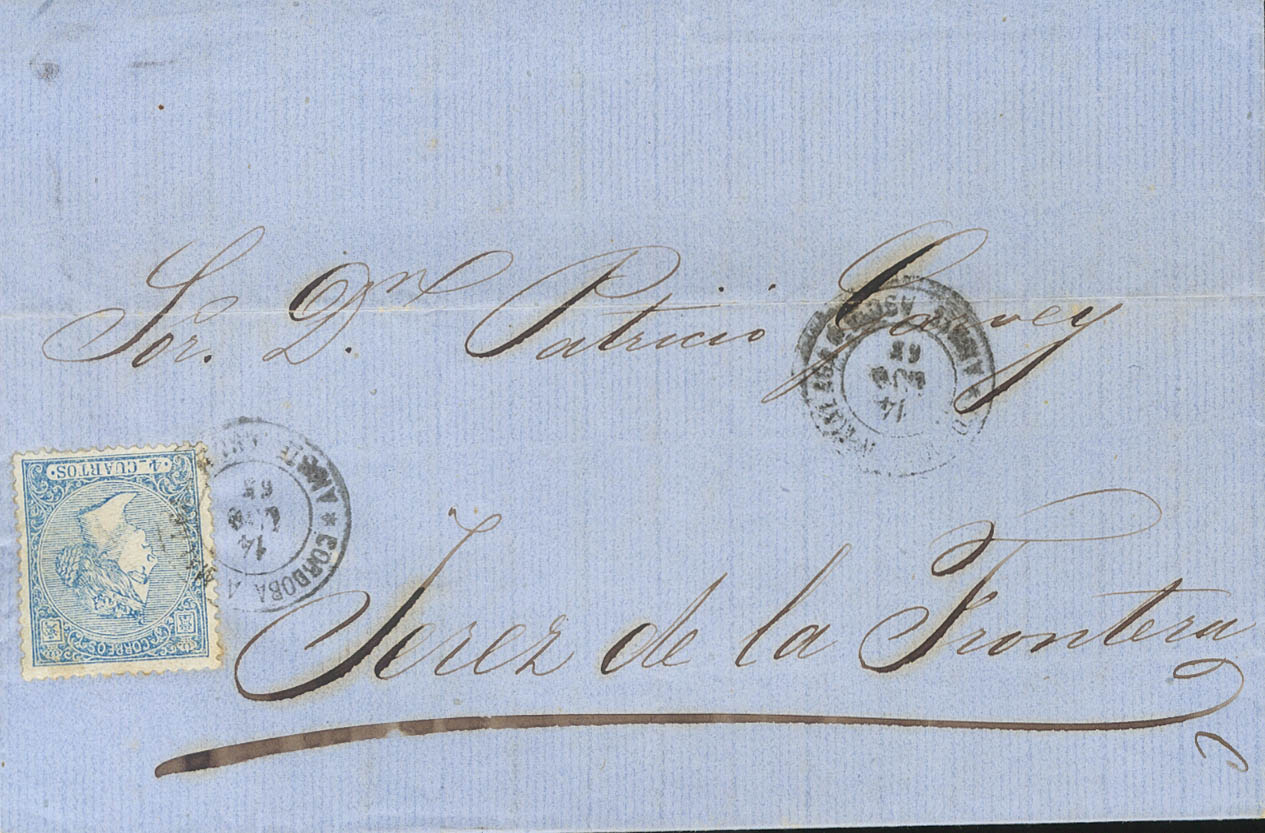 Sor. Dn. Patricio Garvey
Jerez de la Frontera
4 CUARTOS.
CORREOS
★ CORDOBA A
14
65
14